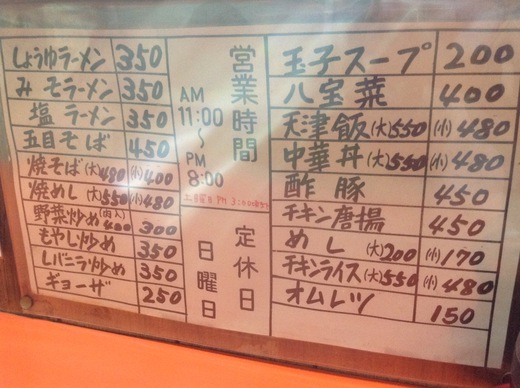 しょうゆラーメン 350
みそラーメン 350
塩ラーメン 350
五目そば 450
焼そば(大)480 (小)400
焼めし(大)550 (小)480
野菜炒め(肉入)400 300
もやし炒め 350
レバニラ炒め 350
ギョーザ 250
営業時間
AM
11:00
〜
PM
8:00
土曜日PM 3:00
定休日
日曜日
玉子スープ 200
八宝菜 400
天津飯(大)550 (小)480
中華丼(大)550 (小)480
酢豚 450
チキン唐揚 450
めし(大)200 (小)170
チキンライス(大)550 (小)480
オムレツ 150